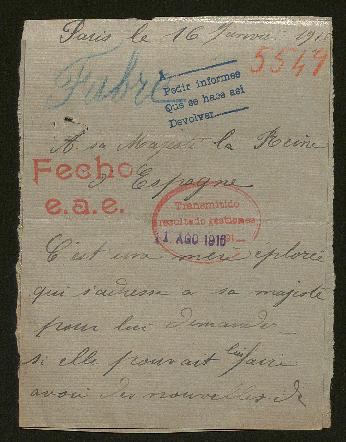 Paris le 16 Janvier 191
5549
Fabre
A
Pedir informes
Que se hace así
Devolver
A sa Majesté la Reine
d'Espagne
Fecho
e.a.e.
Transmitido
resultado gestiones
11 AGO 1916
C'est une mère éplorée
qui s'adresse a sa majesté
pour lui demander
si elle pouvait lui faire
avoir des nouvelles de